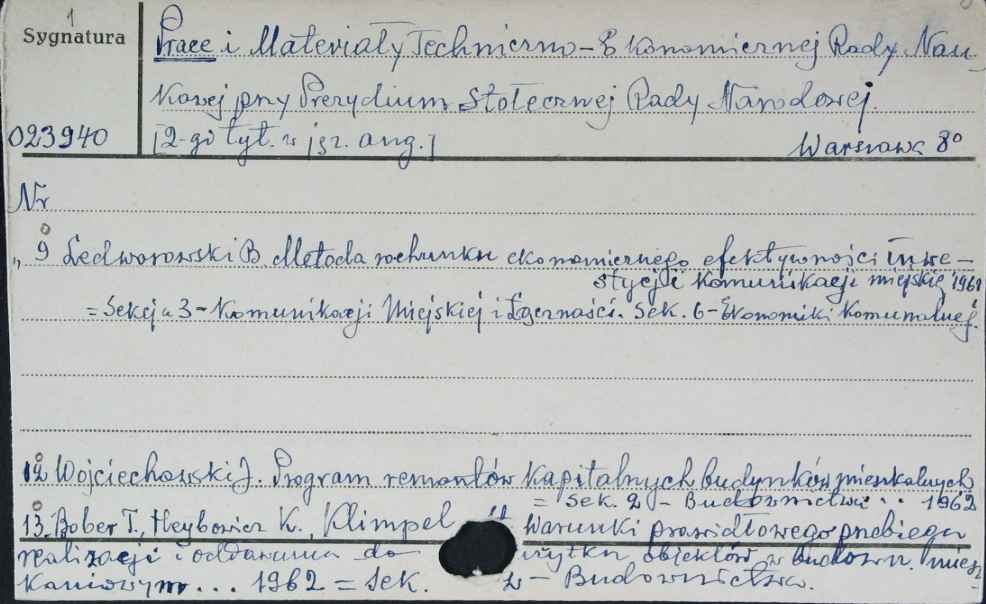 1
Sygnatura
Prace i Materiały Techniczno-Ekonomicznej Rady Nau-
kowej przy Prezydium Stołecznej Rady Narodowej.
023940
[2-gi tyt. w jęz. ang.]
Warszawa 8°
Nr
„ 9 Ledworowski B. Metoda rachunku ekonomicznego efektywności inwe-
stycji komunikacji miejskiej 1961
= Sekcja 3 - Komunikacji Miejskiej i Łączności. Sek. 6 - Ekonomiki Komunalnej.
12 Wojciechowski J. Program remontów kapitalnych budynków mieszkalnych
= Sek. 2 - Budownictwa .. 1962
13. Bober T., Heybowicz K., Klimpel Warunki prawidłowego przebiegu
realizacji i oddawania do użytku obiektów w budown. miesz
kaniowym... 1962 = Sek. 2 - Budownictwa.